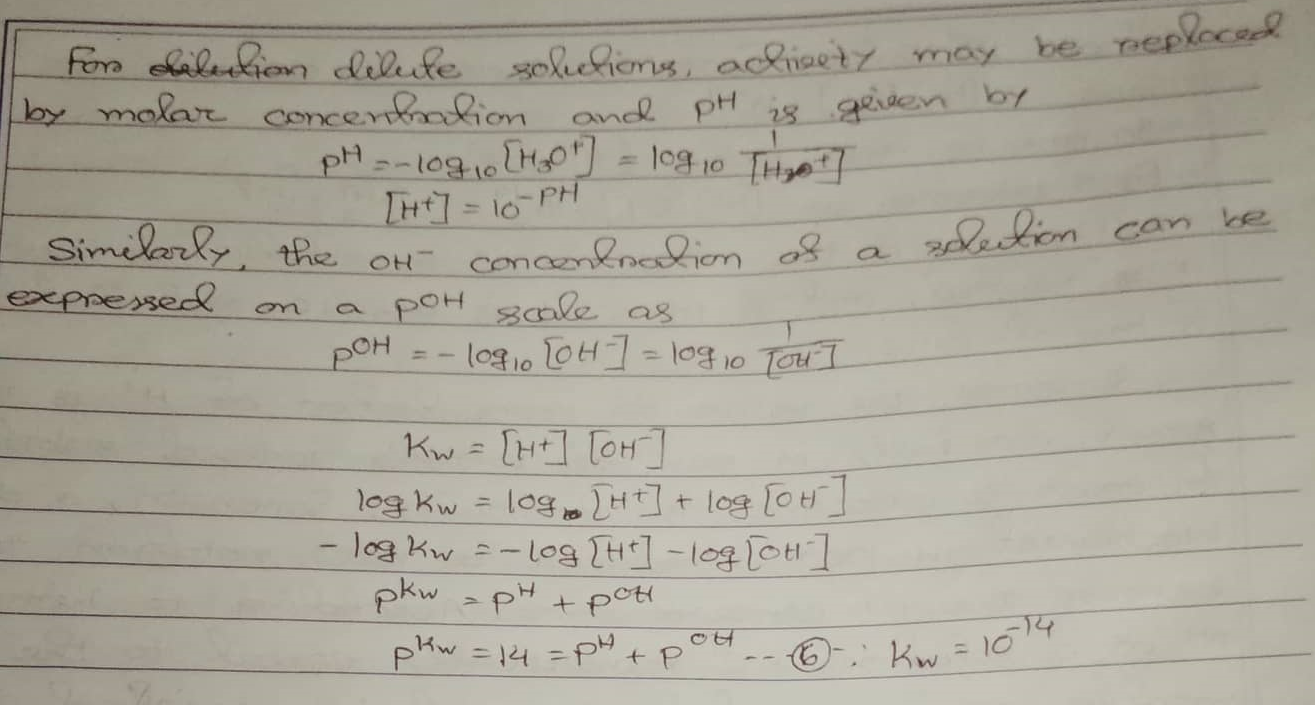 For dilution dilute solutions, activity may be replaced
by molar concentration and pH is given by
pH = -log₁₀ [H₃O⁺] = log₁₀ 1/[H₃O⁺]
[H⁺] = 10⁻ᴾᴴ
Similarly, the OH⁻ concentration of a solution can be
expressed on a pᴼᴴ scale as
pᴼᴴ = - log₁₀ [OH⁻] = log₁₀ 1/[OH⁻]
Kw = [H⁺] [OH⁻]
log Kw = log [H⁺] + log [OH⁻]
- log Kw = - log [H⁺] - log [OH⁻]
pᴷʷ = pᴴ + pᴼᴴ
pᴷʷ = 14 = pᴴ + pᴼᴴ --- ⑥ ∵ Kw = 10⁻¹⁴